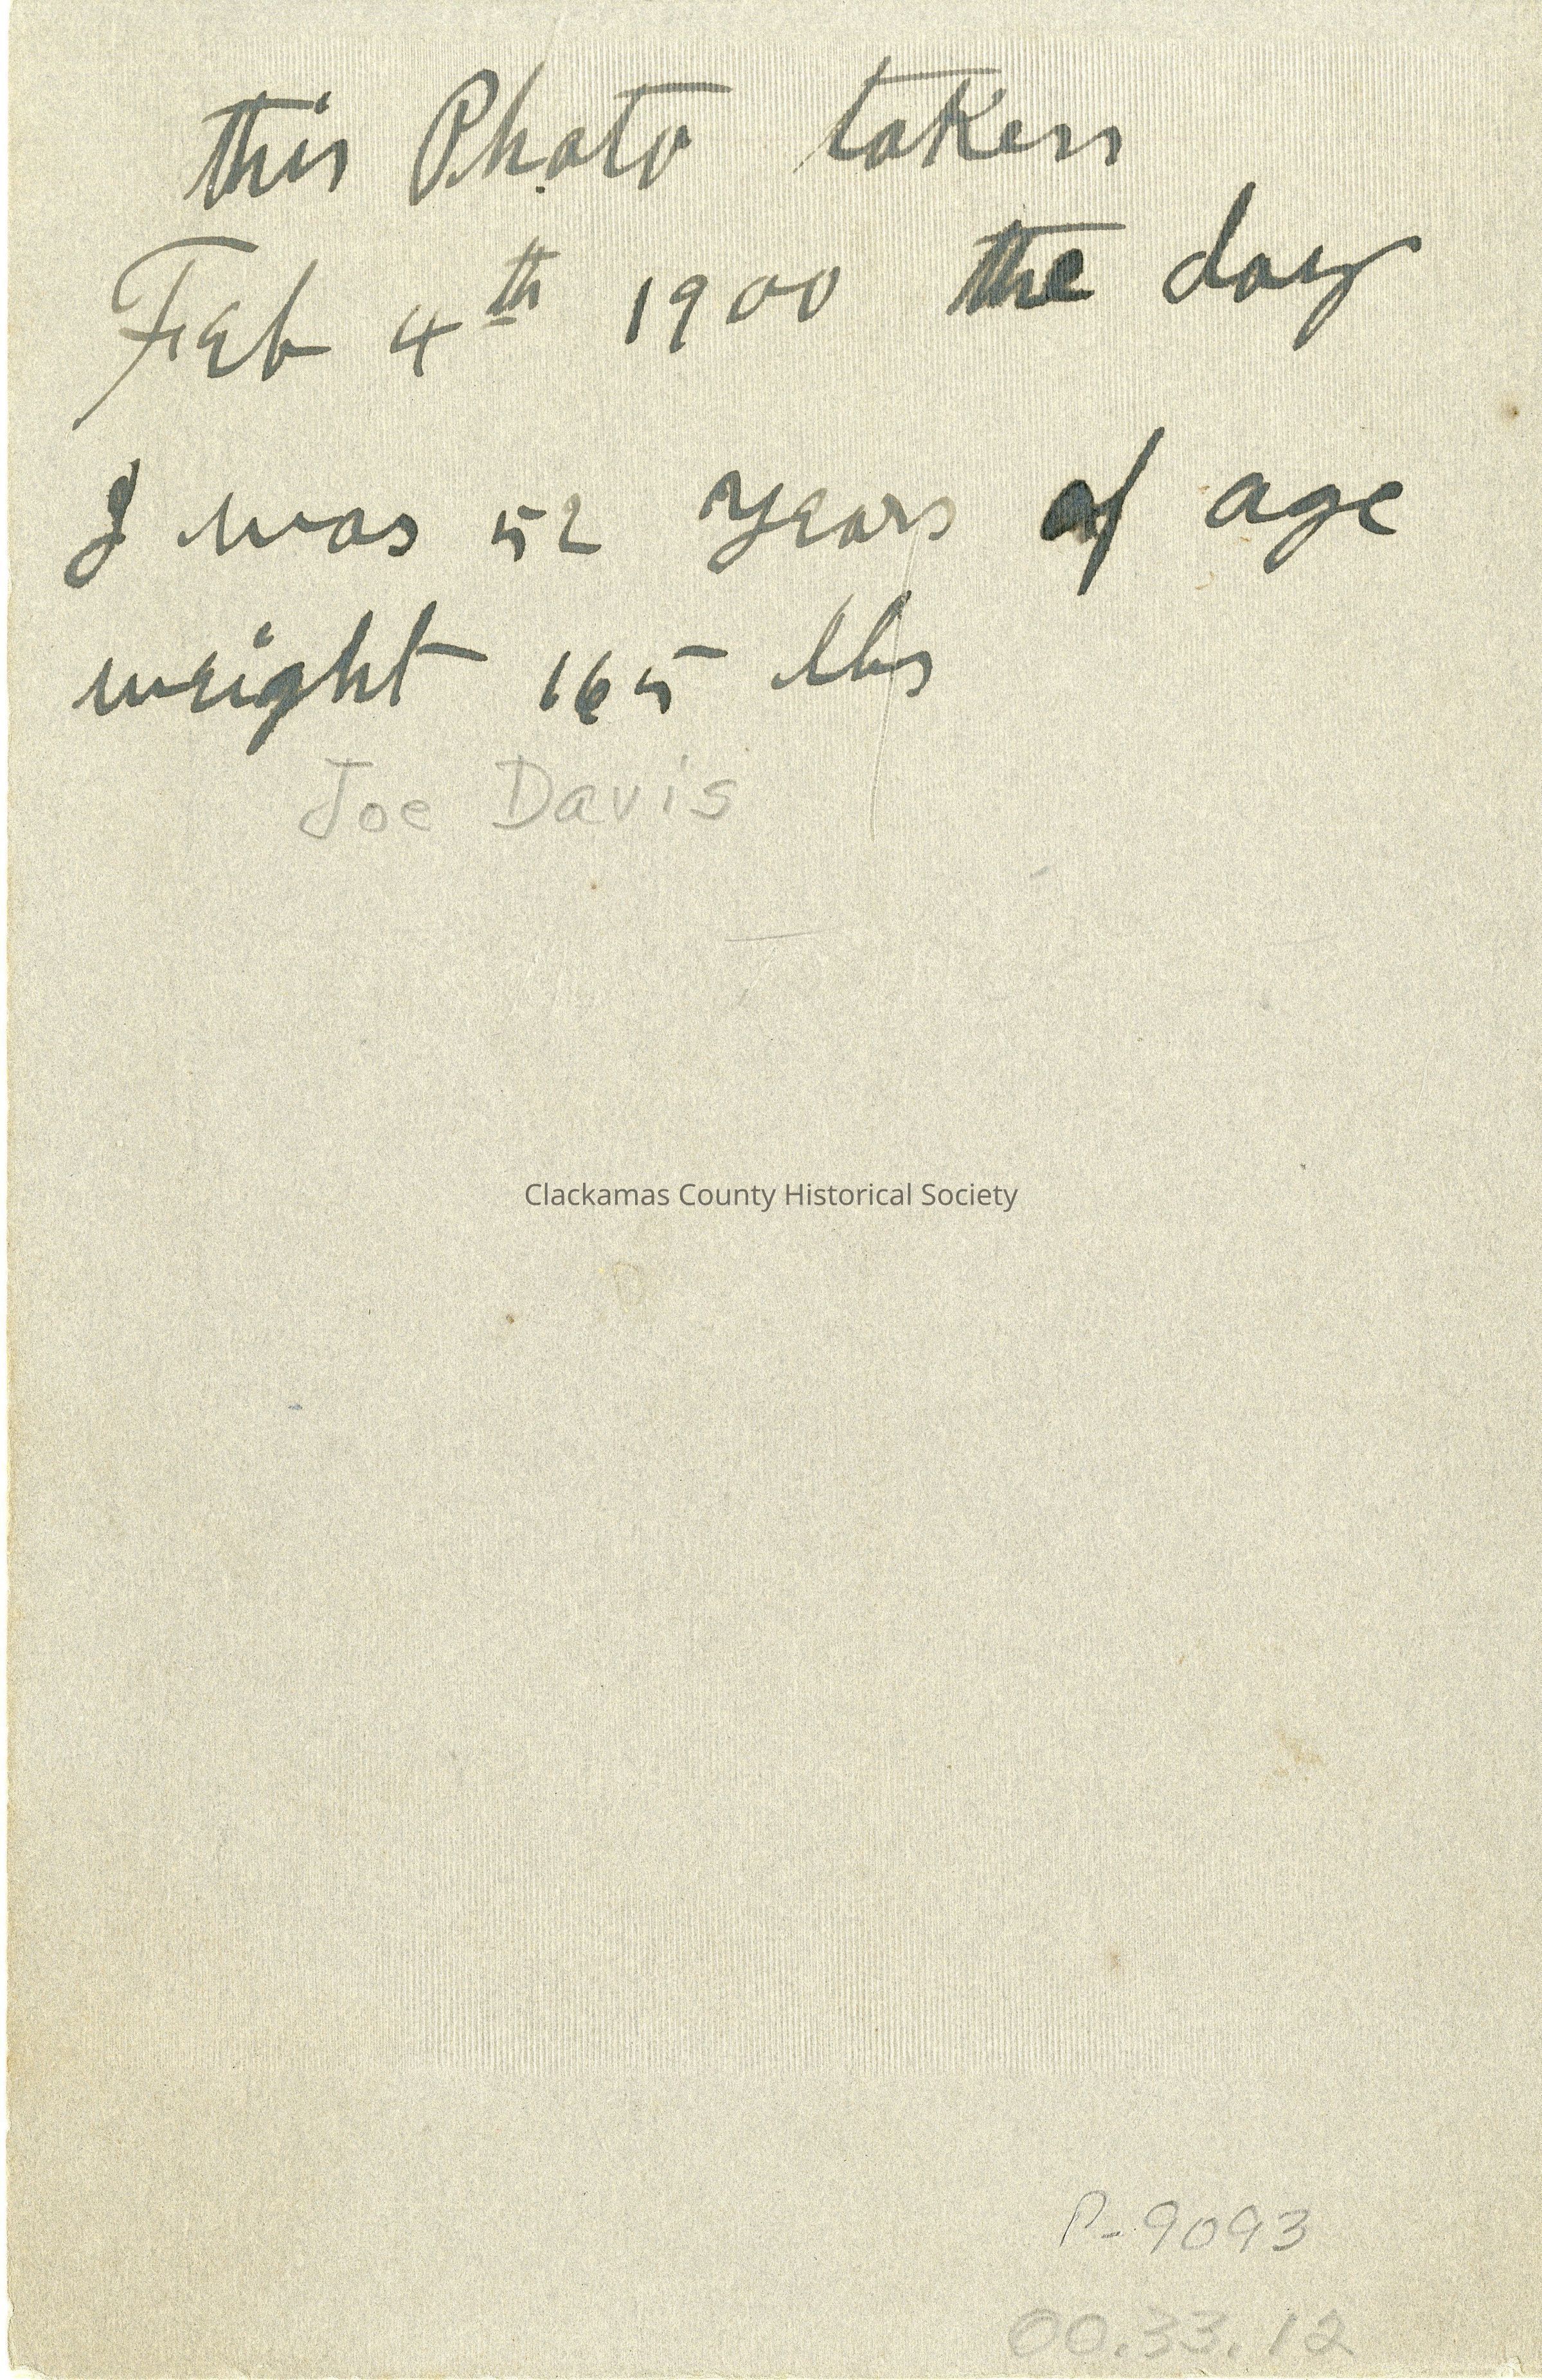 this Photo taken
Feb 4th 1900 the day
I was 52 years of age
weight 165 lbs
Joe Davis
Clackamas County Historical Society
P-9093
00.33.12